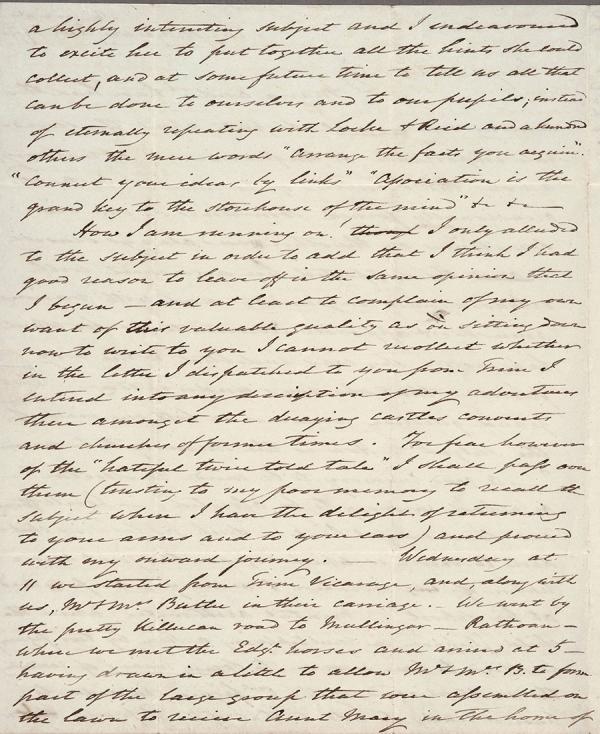 a highly interesting subject and I endeavoured
to excite her to put together all the hints she could
collect, and at some future time to tell us all that
can be done to ourselves and to our pupils; instead
of eternally repeating with Locke & Reid and a hundred
others the mere words "arrange the facts you acquire".
"Connect your ideas by links" "Association is the
grand key to the storehouse of the mind" &c &c —
How I am running on! though I only alluded
to the subject in order to add that I think I had
good reason to leave off in the same opinion that
I begun — and at least to complain of my own
want of this valuable quality as on sitting down
now to write to you I cannot recollect whether
in the letter I dispatched to you from Trim I
entered into any description of my adventures
there amongst the decaying castles convents
and churches of former times. For fear however
of the "hateful twice told tale" I shall pass over
them (trusting to my poor memory to recall the
subject when I have the delight of returning
to your arms and to your ears) and proceed
with my onward journey. — Wednesday at
11 we started from Trim Vicarage, and, along with
us, Mr & Mrs Butler in their carriage. — We went by
the pretty Killucan road to Mullingar — Rathowen —
where we met the Edgt. horses and arrived at 5 —
having drawn in a little to allow Mr & Mrs B. to form
part of the large group that were assembled on
the lawn to receive Aunt Mary in the home of